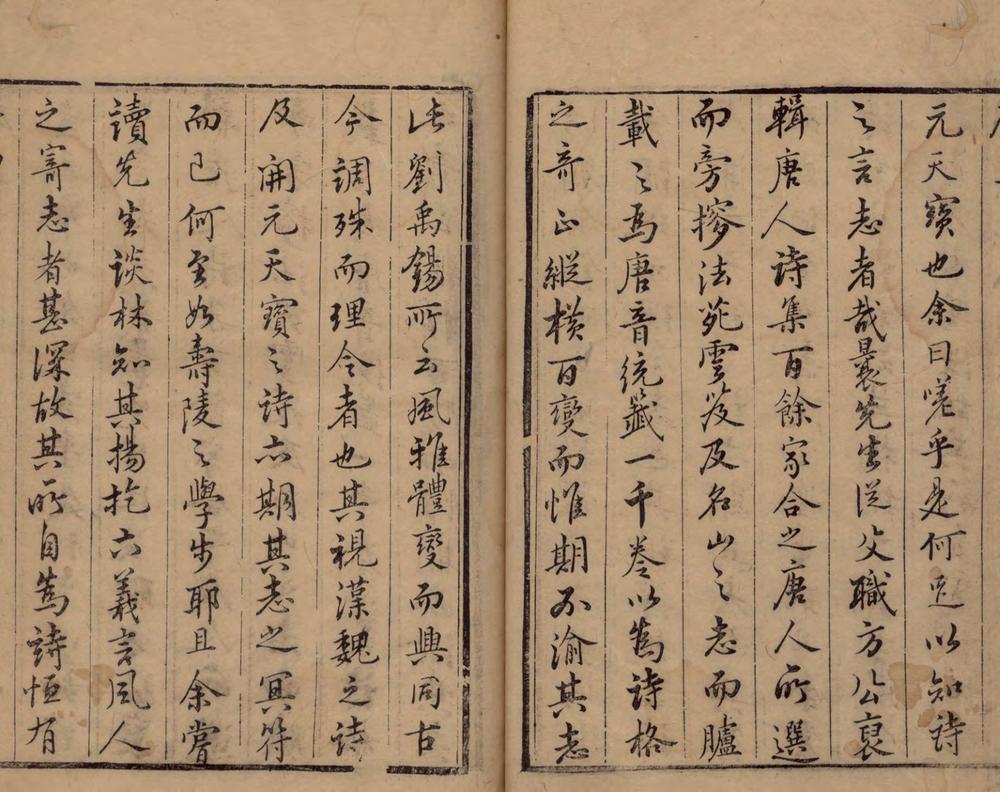 元天寶也余曰嗟乎是何足以知詩
之言志者哉曩先生従父職方公裒
輯唐人詩集百餘家合之唐人所選
而旁摉法苑雲笈及名山之志而臚
載之為唐音統籤一千巻以為詩格
之奇正縱横百變而惟期不渝其志
此劉禹錫所云風雅體變而興同古
今調殊而理今者也其視漢魏之詩
及開元天寶之詩亦期其志之冥符
而已何至如壽陵之學步耶且余嘗
讀先生談林知其揚扢六義言風人
之寄志者甚深故其所自為詩恒有